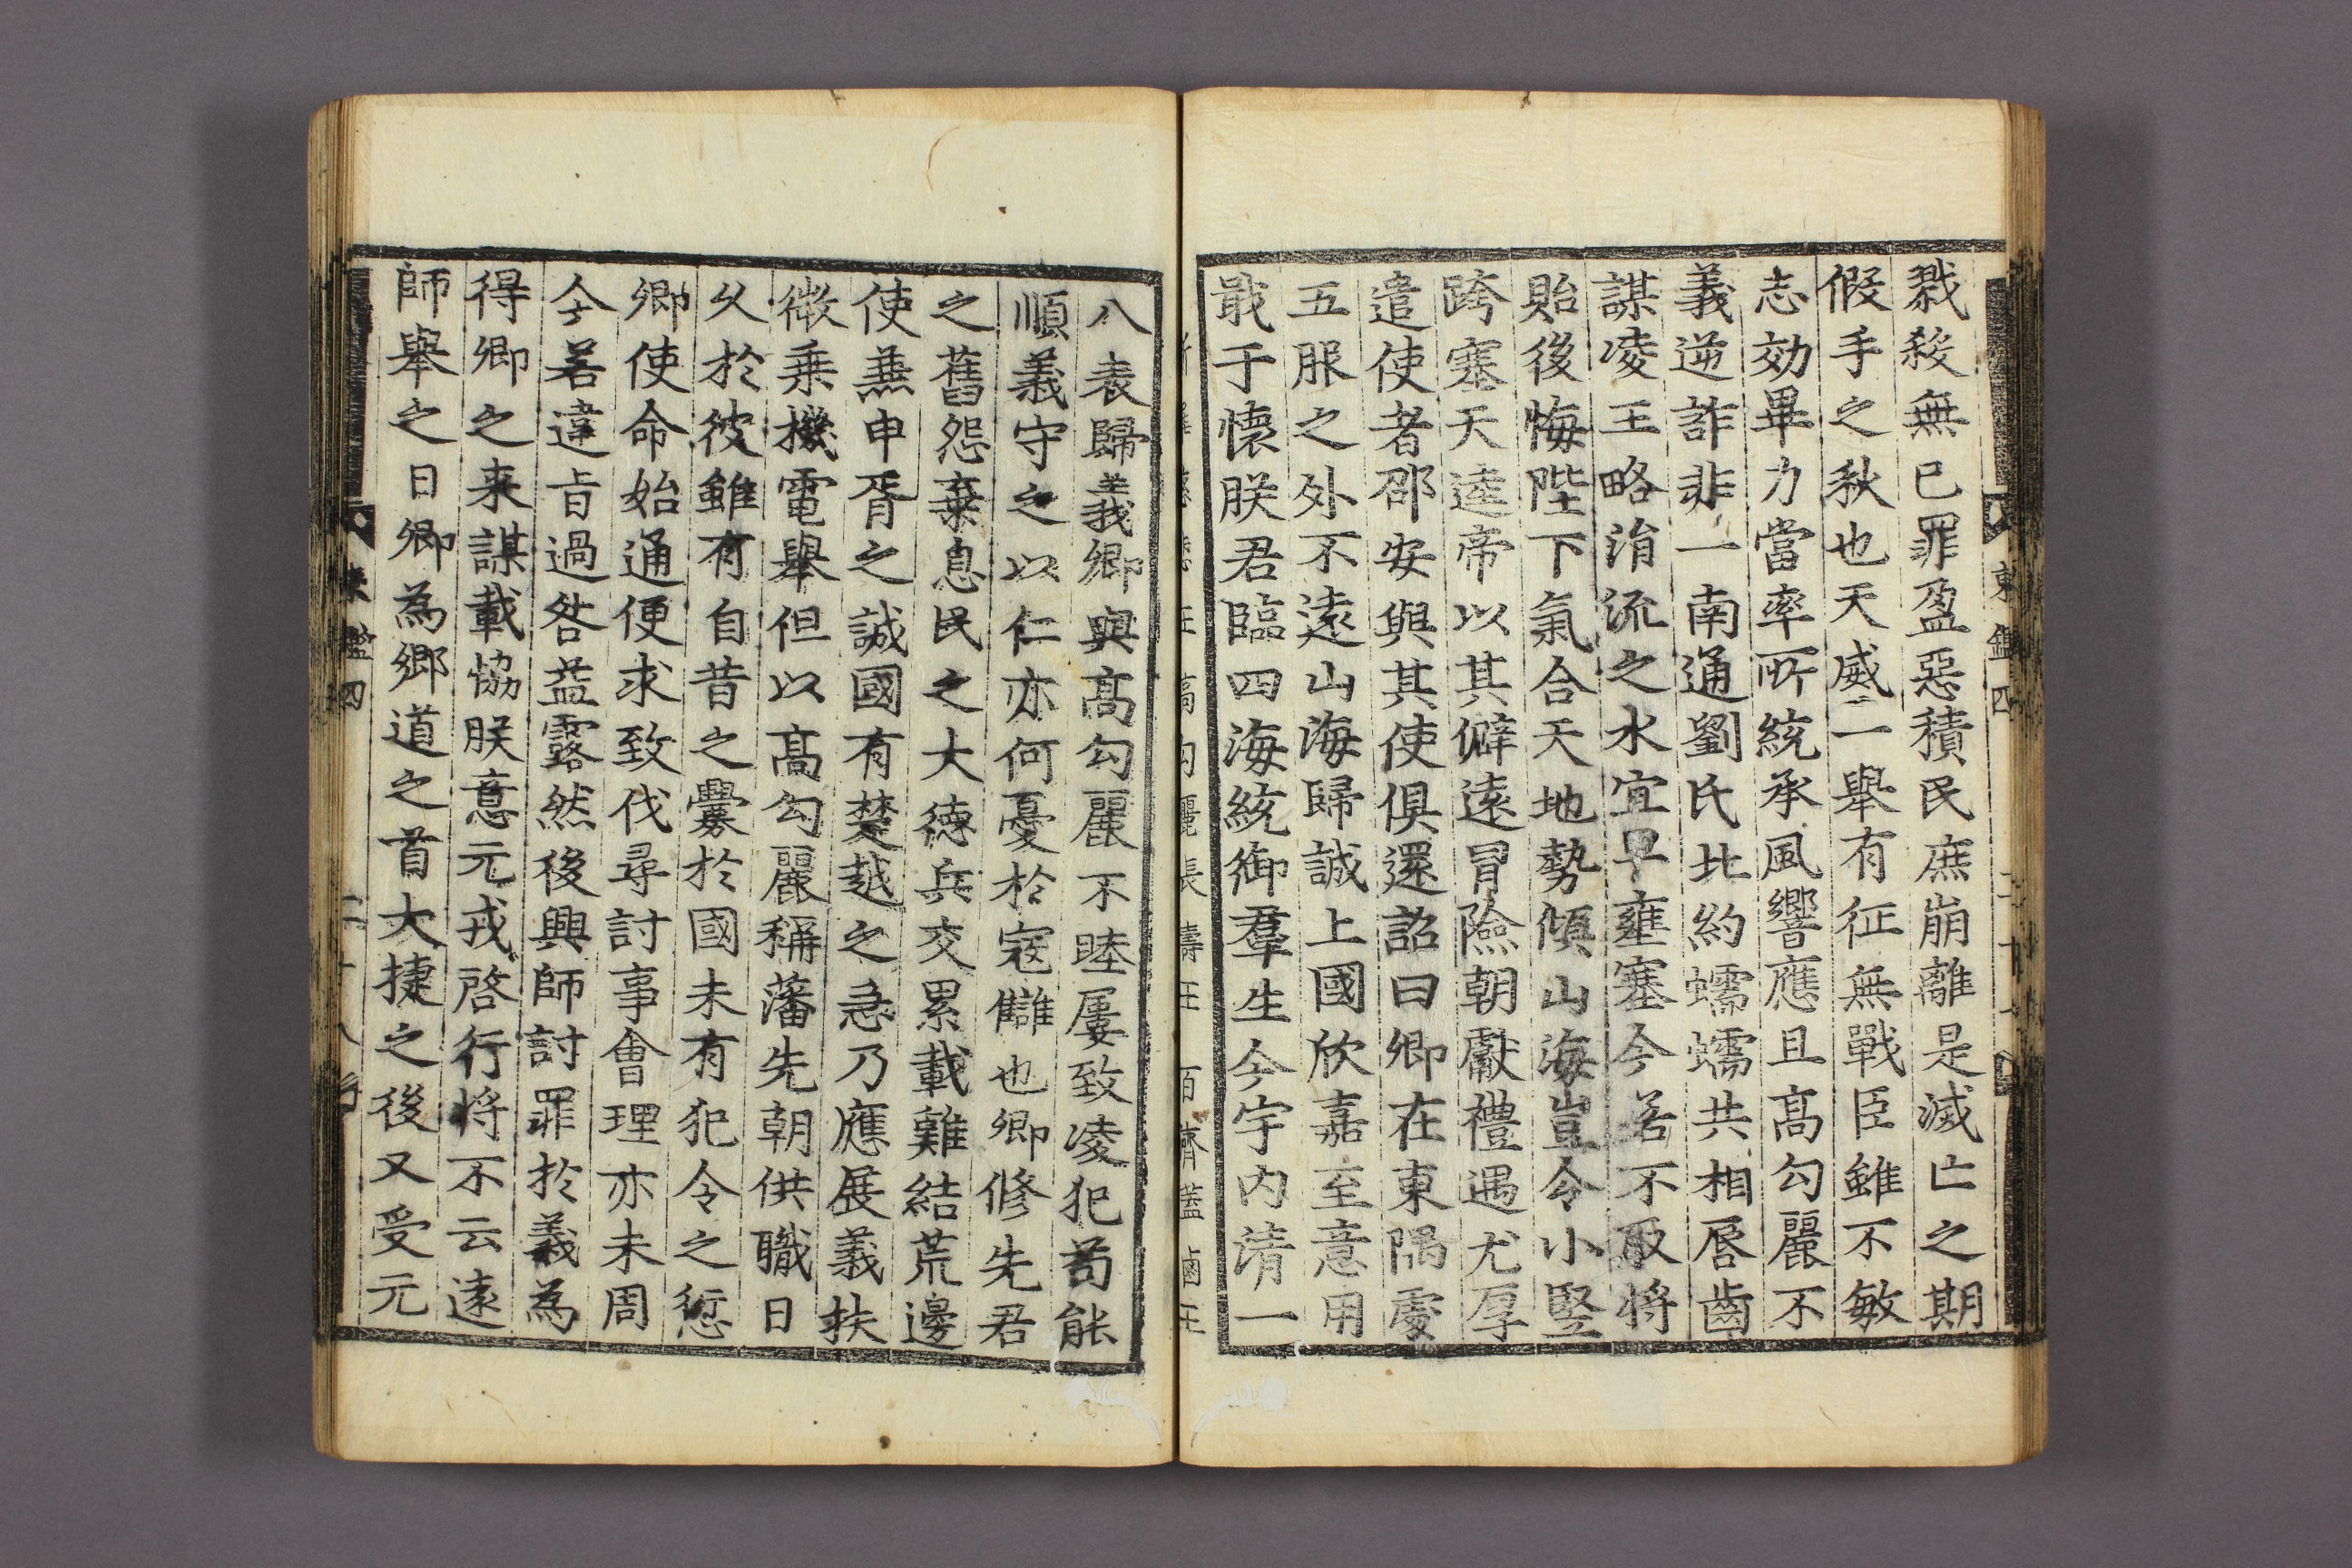 戮殺無已罪盈惡積民庶崩離是滅亡之期
假手之秋也天威一擧有征無戰臣雖不敏
志効畢力當率所統承風響應且髙勾麗不
義逆詐非一南通劉氏北約蠕蠕共相唇齒
謀凌王略涓流之水宜早壅塞今若不取將
貽後悔陛下氣合天地勢傾山海豈令小竪
跨塞天逵帝以其僻逺冒險朝獻禮遇尤厚
遣使者邵安與其使俱還詔曰卿在東隅處
五服之外不逺山海歸誠上國欣嘉至意用
戢于懷朕君臨四海統御羣生今宇内淸一
八表歸義卿與髙勾麗不睦屢致凌犯苟能
順義守之以仁亦何憂於寇讎也卿修先君
之舊怨棄息民之大徳兵交累載難結荒邊
使兼申胥之誠國有楚越之急乃應展義扶
微乗機電擧但以髙勾麗稱藩先朝供職日
乆於彼雖有自昔之釁於國未有犯令之愆
卿使命始通便求致伐尋討事會理亦未周
今若違旨過咎益露然後興師討罪於義為
得卿之来謀載協朕意元戎啓行将不云逺
師擧之日卿為郷道之首大捷之後又受元
東鑑四
二十八